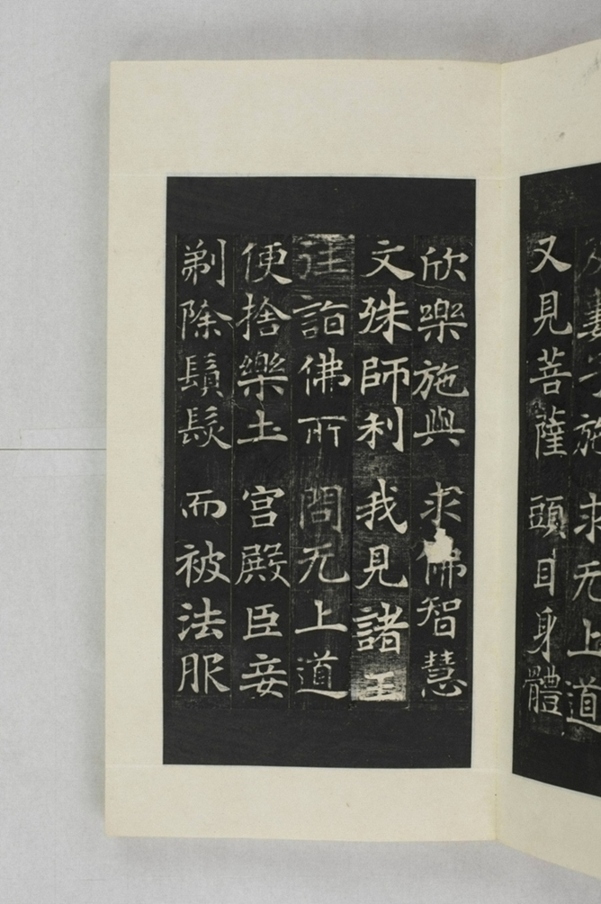 及妻子施 求无上道
又見菩薩 頭目身體
欣樂施與 求佛智慧
文殊師利 我見諸王
往詣佛所 問无上道
便捨樂土 宮殿臣妾
剃除鬚髮 而被法服